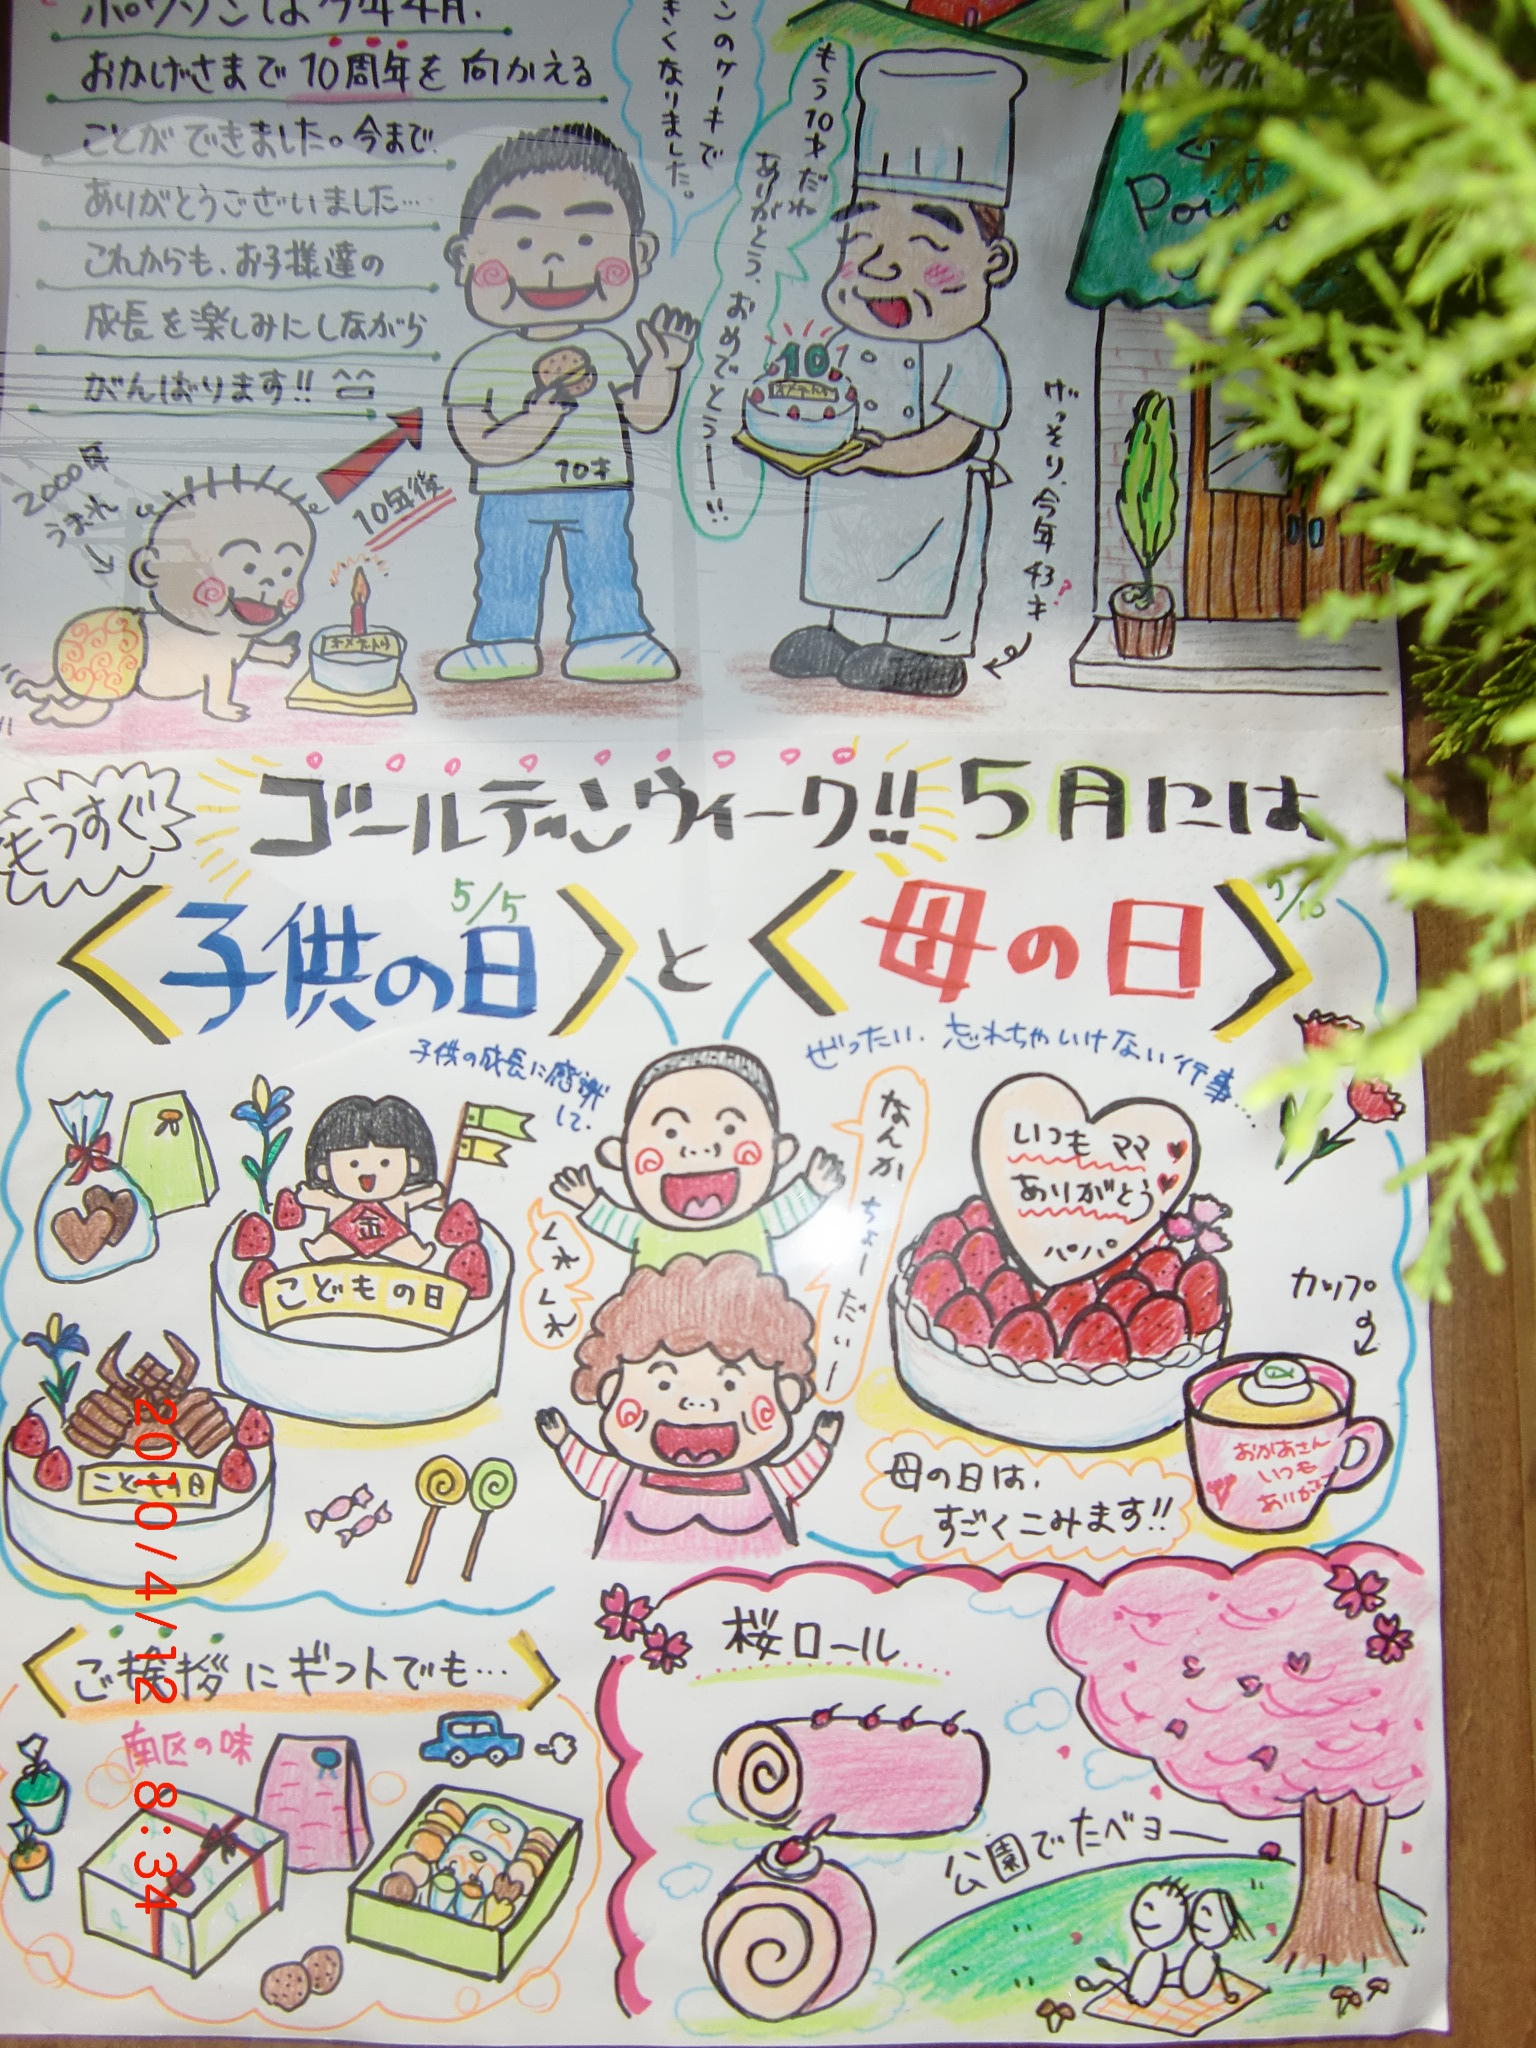 ポワソンは今年4月、
おかげさまで10周年を向かえる
ことができました。今まで
ありがとうございました…
これからも、お子様達の
成長を楽しみにしながら
がんばります!!
ンのケーキで
きくなりました。
もう10才だね
ありがとう、おめでとうー!!
10
10才
2000年
うまれ
10年後
げっそり、今年43才
もうすぐ
ゴールデンウィーク!! 5月には
5/5
子供の日 と 母の日
子供の成長に感謝
して、
ぜったい、忘れちゃいけない行事…
なんかちょーだいー
くれくれ
金
こどもの日
こどもの日
いつもママ
ありがとう
パパ
カップ
おかあさん
いつも
母の日は、
すごくこみます!!
ご挨拶にギフトでも…
南区の味
桜ロール
公園でたべヨー
2010/4/12 8:34